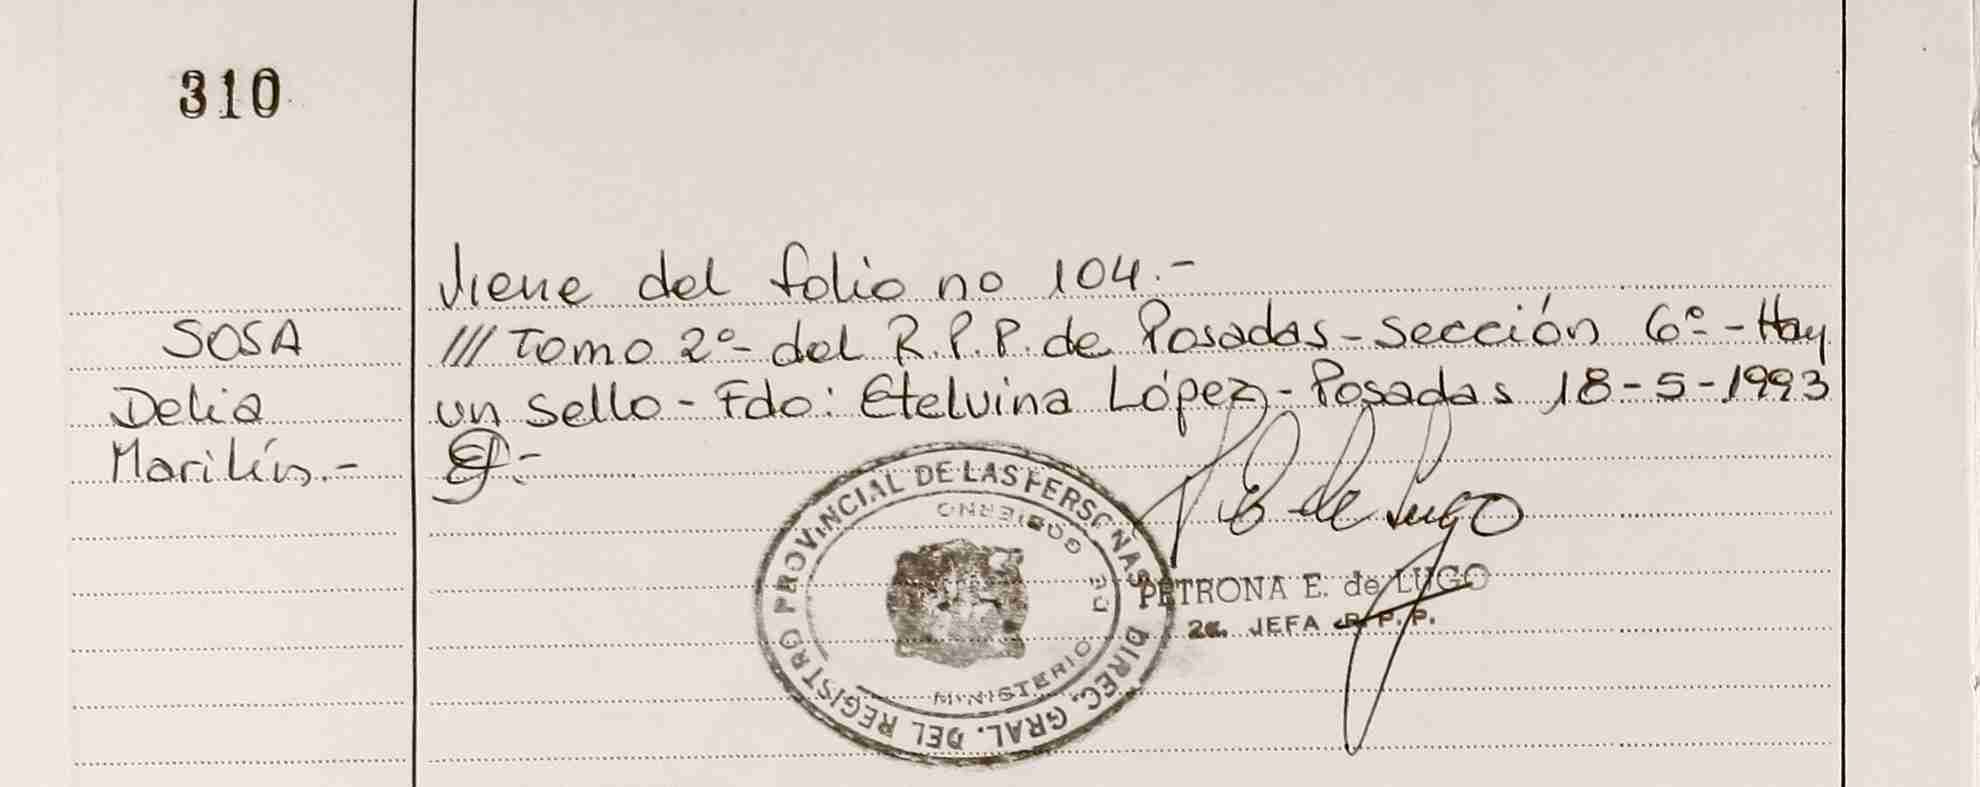 310
viene del folio no 104.-
SOSA
Delia
Marilín.-
/// Tomo 2º- del R.P.P. de Posadas - Sección 6º - Hay
un sello - Fdo: Etelvina López - Posadas 18-5-1993
DIREC. GRAL. DEL REGISTRO PROVINCIAL DE LAS PERSONAS
MINISTERIO DE GOBIERNO
P E de Lugo
PETRONA E. de LUGO
2a. JEFA R.P.P.